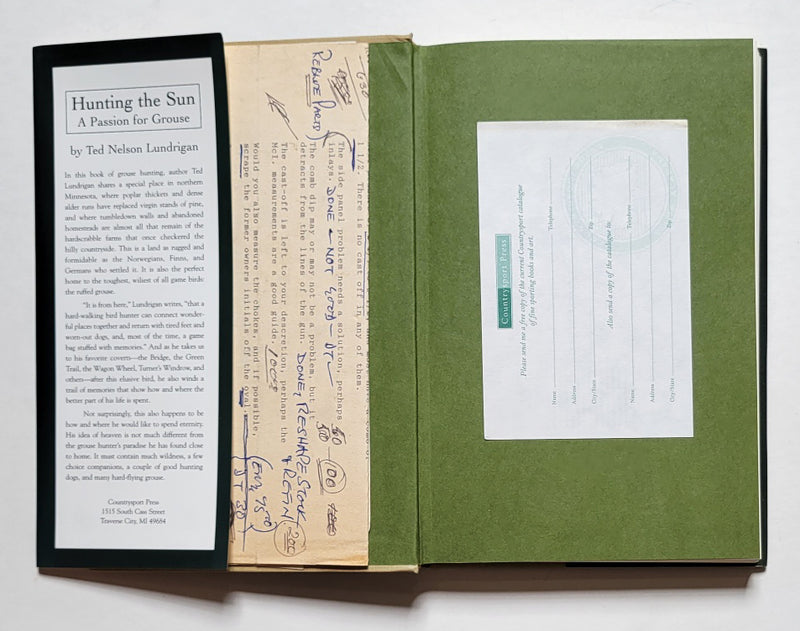 Hunting the Sun
A Passion for Grouse
by Ted Nelson Lundrigan
In this book of grouse hunting, author Ted
Lundrigan shares a special place in northern
Minnesota, where poplar thickets and dense
alder runs have replaced virgin stands of pine,
and where tumbledown walls and abandoned
homesteads are almost all that remain of the
hardscrabble farms that once checkered the
hilly countryside. This is a land as rugged and
formidable as the Norwegians, Finns, and
Germans who settled it. It is also the perfect
home to the toughest, wiliest of all game birds:
the ruffed grouse.
"It is from here," Lundrigan writes, "that a
hard-walking bird hunter can connect wonder-
ful places together and return with tired feet and
worn-out dogs, and, most of the time, a game
bag stuffed with memories." And as he takes us
to his favorite coverts—the Bridge, the Green
Trail, the Wagon Wheel, Turner's Window, and
others—after this elusive bird, he also winds a
trail of memories that show how and where the
better part of his life is spent.
Not surprisingly, this also happens to be
how and where he would like to spend eternity.
His idea of heaven is not much different from
the grouse hunter's paradise he has found close
to home. It must contain much wildness, a few
choice companions, a couple of good hunting
dogs, and many hard-flying grouse.
Countrysport Press
1515 South Cass Street
Traverse City, MI 49684
630
REBLUE PARTS
1 1/2. There is no cast off in any of them.
The side panel problem needs a solution, perhaps
inlays. DONE - NOT GOOD - DT
The comb dip may or may not be a problem, but it
detracts from the lines of the gun. DONE, RESHAPE STOCK
& REFIN 200
100
The cast-off is left to your descretion, perhaps the
McI. measurements are a good guide.
Would you also measure the chokes, and if possible,
scrape the former owners initials off the oval.
Countrysport Press
Please send me a free copy of the current Countrysport catalogue
of fine sporting books and art.
Name
Telephone
Address
City/State
Zip
Also send a copy of the catalogue to:
Name
Telephone
Address
City/State
Zip